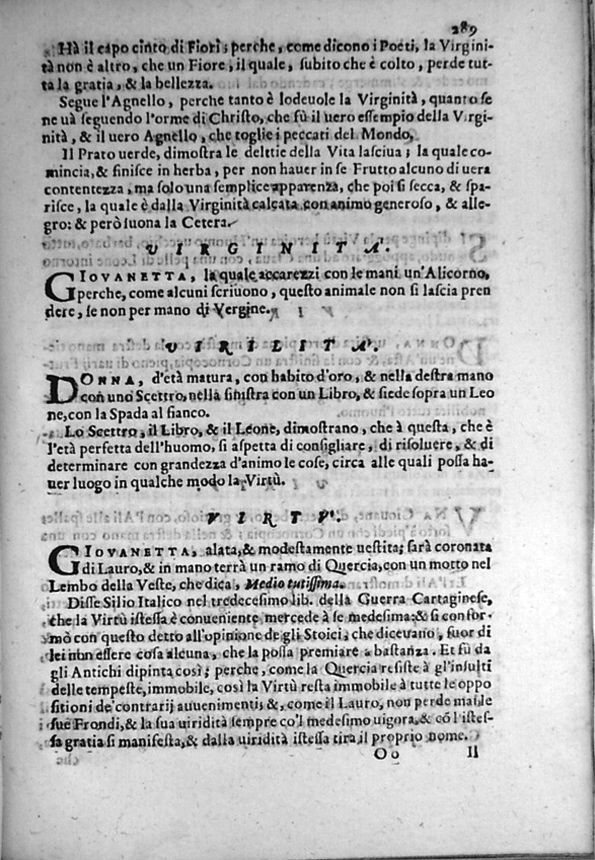 289
Hà il capo cinto di Fiori; perche, come dicono i Poeti, la Virgini-
tà non è altro, che un Fiore, il quale, subito che è colto, perde tut-
ta la gratia, & la bellezza.
Segue l'Agnello, perche tanto è lodeuole la Virginità, quanto se
ne uà seguendo l'orme di Christo, che fù il uero essempio della Virgi-
nità, & il uero Agnello, che toglie i peccati del Mondo,
Il Prato uerde, dimostra le delitie della Vita lasciua; la quale co-
mincia, & finisce in herba, per non hauer in se Frutto alcuno di uera
contentezza, ma solo una semplice apparenza, che poi si secca, & spa-
risce, la quale è dalla Virginità calcata con animo generoso, & alle-
gro: & però suona la Cetera.
VIRGINITA'.
GIOVANETTA, la quale accarezzi con le mani un'Alicorno,
perche, come alcuni scriuono, questo animale non si lascia pren
dere, se non per mano di Vergine.
VIRILITA'.
DONNA, d'età matura, con habito d'oro, & nella destra mano
con uno Scettro, nella sinistra con un Libro, & siede sopra un Leo
ne, con la Spada al fianco.
Lo Scettro, il Libro, & il Leone, dimostrano, che à questa, che è
l'età perfetta dell'huomo, si aspetta di consigliare, di risoluere, & di
determinare con grandezza d'animo le cose, circa alle quali possa ha-
uer luogo in qualche modo la Virtù.
VIRTV'.
GIOVANETTA, alata, & modestamente uestita; sarà coronata
di Lauro, & in mano terrà un ramo di Quercia, con un motto nel
Lembo della Veste, che dica, Medio tutissima.
Disse Silio Italico nel tredecesimo lib. della Guerra Cartaginese,
che la Virtù istessa è conueniente mercede à se medesima: & si confor-
mò con questo detto all'opinione de gli Stoici, che diceuano, fuor di
lei non essere cosa alcuna, che la possa premiare a bastanza. Et fù da
gli Antichi dipinta così; perche, come la Quercia resiste à gl'insulti
delle tempeste, immobile, così la Virtù resta immobile à tutte le oppo
sitioni de' contrarij auuenimenti; &, come il Lauro, non perde mai le
sue Frondi, & la sua uiridità sempre co'l medesimo uigora, & có l'istes-
sa gratia si manifesta, & dalla uiridità istessa tira il proprio nome.
Oo Il